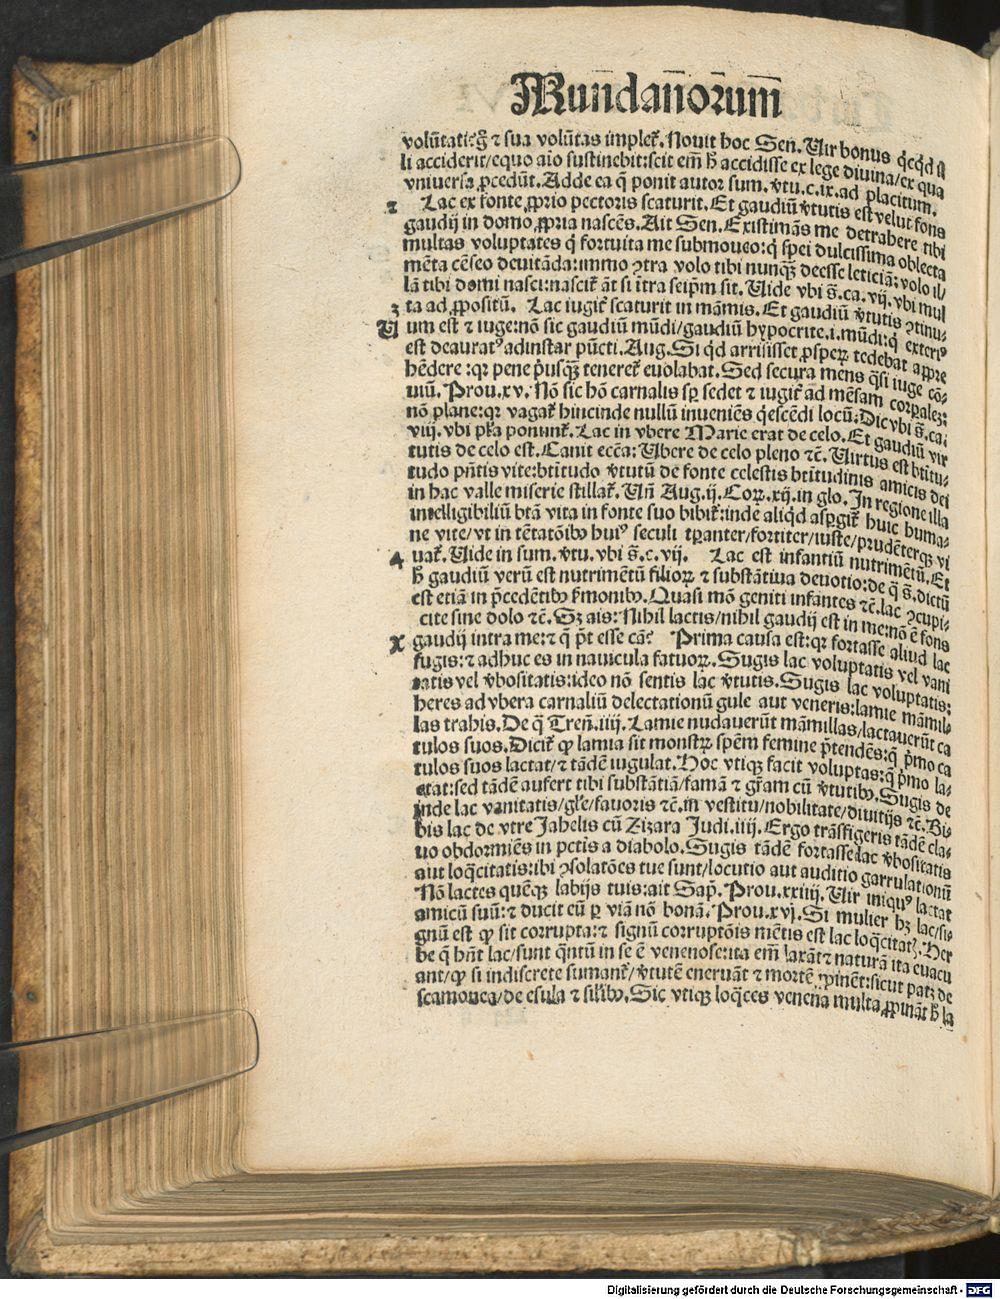 Mundan̄orum̄
volūtati: & sua volūtas implet᷑. Nouit hoc Sen. Uir bonus q̇cq̇d
li acciderit/equo aīo sustinebit: scit em̄ h̄ accidisse ex lege diuina/ex qua
vniuersa ꝓcedūt. Adde ea q̄ ponit autor sum. v̓tu.c.ix.ad placitum.
2 Lac ex fonte ꝓprio pectoris scaturit. Et gaudiū v̓tutis est velut fons
gaudij in domo ꝓpria nascēs. Ait Sen. Existimās me detrahere tibi
multas voluptates q̇ fortuita me submoueo: q̇ spei dulcissima oblecta
mēta cēseo deuitāda: immo ꝯtra volo tibi nunqꝫ̄ deesse leticiā: volo il/
lā tibi domi nasci: nascit᷑ āt si īt̄ra teipm̄ sit. Uide vbi s̄.ca.vij.vbi mul
3 ta ad ꝓpositū. Lac iugit᷑ scaturit in māmis. Et gaudiū v̓tutis ꝯtinu-
U um est & iuge: nō sic gaudiū mūdi/gaudiū hypocrite.i.mūdi: q̇ exteriꝰ
est deauratꝰ adinstar pūcti. Aug. Si q̇d arrisisset ꝓsperꝝ tedebat appre
hēdere: qꝛ pene p̓usqꝫ̄ teneret᷑ euolabat. Sed secura mens q̄si iuge cō-
uiuū. Prou.xv. Nō sic hō carnalis sp̄ sedet & iugit᷑ ad mēsam corꝑalez:
nō plane: qꝛ vagat᷑ hincinde nullū inueniēs q̇escēdi locū: Dic vbi s̄.ca.
viij. vbi pl̓a ponunt᷑. Lac in vbere Marie erat de celo. Et gaudiū vir
tutis de celo est. Canit ecc̄a: Ubere de celo pleno ⁊c̄. Uirtus est btītu-
tudo pn̄tis vite: btītudo v̓tutū de fonte celestis btītudinis amicis dei
in hac valle miserie stillat᷑. Un̄ Aug.ij.Corꝝ.xij.in glo. In regione illa
intelligibiliū btā vita in fonte suo bibit᷑: inde aliq̇d aspgit᷑ huic huma-
ne vite/vt in tētatōibꝰ huiꝰ seculi tꝑanter/fortiter/iuste/prudēterqꝫ vi
4 uat᷑. Uide in sum. v̓tu. vbi s̄.c.vij. Lac est infantiū nutrimētū. Et
h̄ gaudiū verū est nutrimētū filiorꝝ & substātiua deuotio: de q̇ s̄. dictū
est etiā in p̄cedētibꝰ s̓monibꝰ. Quasi mō geniti infantes ⁊c̄. lac ꝯcupi-
cite sine dolo ⁊c̄. Sꝫ ais: Nihil lactis/nihil gaudij est in me: nō ē fons
X gaudij intra me: & q̄ p̄t esse cā? Prima causa est: qꝛ fortasse aliud lac
sugis: & adhuc es in nauicula fatuorꝝ. Sugis lac voluptatis vel vani
tatis vel v̓bositatis: ideo nō sentis lac v̓tutis. Sugis lac voluptatis:
heres ad vbera carnaliū delectationū gule aut veneris: lamie māmil-
las trahis. De q̇ Tren̄.iiij. Lamie nudauerūt māmillas/lactauerūt ca
tulos suos. Dicit᷑ ꝙ lamia sit monstrꝝ spēm femine p̄tendēs: q̄ p̓mo ca
tulos suos lactat/& tādē iugulat. Hoc vtiqꝫ facit voluptas: q̄ p̓mo la-
ctat: sed tādē aufert tibi substātiā/famā & gr̄am cū v̓tutibꝰ. Sugis de
inde lac vanitatis/gl̓e/fauoris ⁊c̄. in vestitu/nobilitate/diuitijs ⁊c̄. Bi-
bis lac de vtre Jahelis cū Zizara Judi.iiij. Ergo trāsfigeris tādē cla-
uo obdormiēs in pctīs a diabolo. Sugis tādē fortasse lac v̓bositatis
aut loq̄citatis: ibi ꝯsolatōes tue sunt/locutio aut auditio garrulationū
Nō lactes quēqꝫ labijs tuis: ait Sap̄. Prou.xxiiij. Uir iniquꝰ lactat
amicū suū: & ducit eū ꝑ viā nō bonā. Prou.xvj. Si mulier hꝫ lac/si-
gnū est ꝙ sit corrupta: & signū corruptōis mētis est lac loq̄citatꝭ. Her
be q̄ hn̄t lac/sunt q̄ntū in se ē venenose: ita em̄ laxāt & naturā ita euacu
ant/ꝙ si indiscrete sumant᷑/v̓tutē eneruāt & mortē ꝓpinēt: sicut patꝫ de
scamonea/de esula & sil̓ibꝰ. Sic vtiqꝫ loq̄ces venena multa ꝓpināt h̄ la
Digitalisierung gefördert durch die Deutsche Forschungsgemeinschaft - DFG